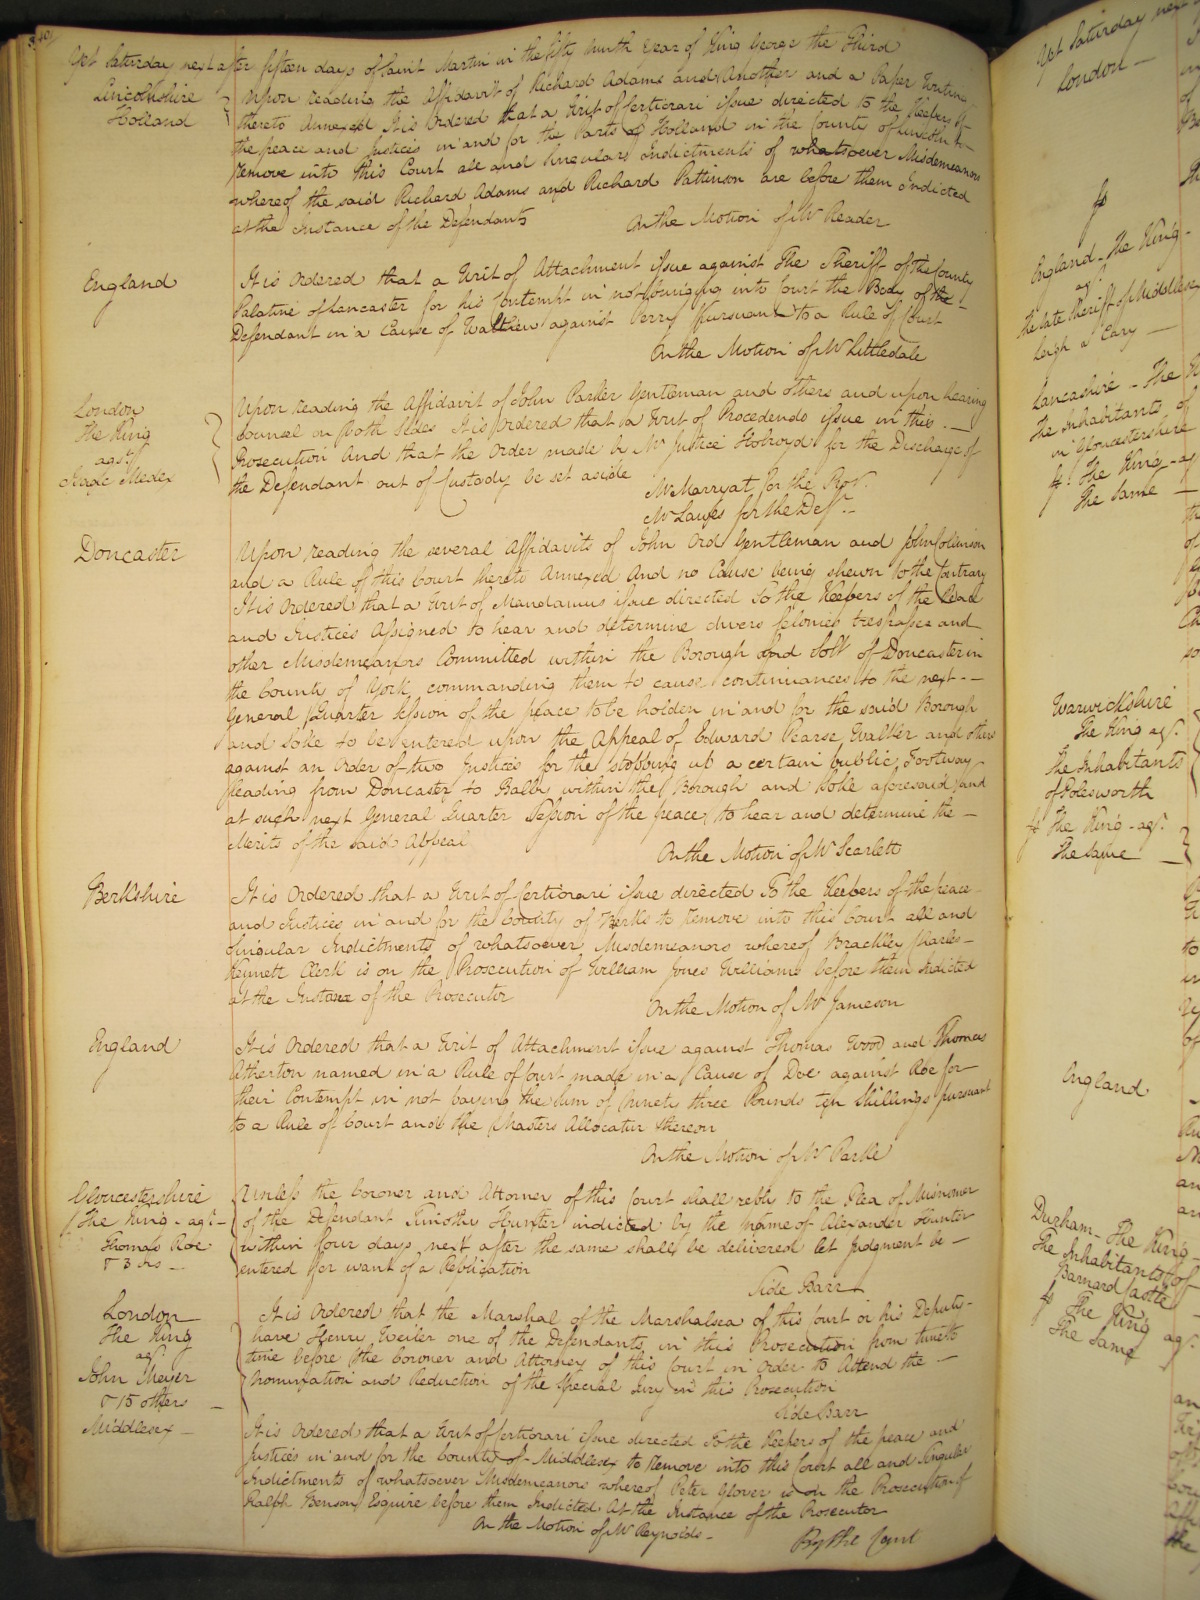 Yet Saturday next after fifteen days of Saint Martin in the fifty ninth Year of King George the Third
Lincolnshire
Holland
Upon reading the Affidavit of Richard Adams and Another and a Paper Writing
thereto Annexed It is Ordered that a Writ of Certiorari issue directed to the Keepers of
the peace and Justices in and for the Parts of Holland in the County of Lincoln to
remove into this Court all and Singulars Indictments of whatsoever Misdemeanors
whereof the said Richard Adams and Richard Pattinson are before them Indicted
at the Instance of the Defendants
On the Motion of Mr Reader
England
It is Ordered that a Writ of Attachment issue against The Sheriff of the County
Palatine of Lancaster for his Contempt in not bringing into Court the Body of the
Defendant in a Cause of Walthew against Perry pursuant to a Rule of Court
On the Motion of Mr Littledale
London
The King
agst
Isaac Medex
Upon reading the Affidavit of John Parker Gentleman and others and upon hearing
Counsel on both Sides It is Ordered that a Writ of Procedendo issue in this
Prosecution And that the Order made by Mr Justice Holroyd for the Discharge of
the Defendant out of Custody be set aside
Mr Marryat for the Pror.
Mr Lawes for the Deft
Doncaster
Upon reading the several Affidavits of John Ord Gentleman and John Collinson
and a Rule of this Court thereto Annexed And no Cause being shewn to the Contrary
It is Ordered that a Writ of Mandamus issue directed to the Keepers of the Peace
and Justices Assigned to hear and determine divers felonies trespasses and
other Misdemeanors Committed within the Borough and Soke of Doncaster in
the County of York, commanding them to cause continuances to the next
General Quarter Session of the peace to be holden in and for the said Borough
and Soke to be entered upon the Appeal of Edward Pearse Walker and others
against an Order of two Justices for the stopping up a certain public Footway
leading from Doncaster to Balby within the Borough and Soke aforesaid and
at such next General Quarter Session of the peace to hear and determine the
Merits of the said Appeal
On the Motion of Mr Scarlett
Berkshire
It is Ordered that a Writ of Certiorari issue directed To the Keepers of the peace
and Justices in and for the County of Berks to remove into this Court all and
Singular Indictments of whatsoever Misdemeanors whereof Brackley Charles
Kennett Clerk is on the Prosecution of William Jones Williams before them Indicted
at the Instance of the Prosecutor
On the Motion of Mr Jameson
England
It is Ordered that a Writ of Attachment issue against Thomas Wood and Thomas
Atherton named in a Rule of Court made in a Cause of Doe against Roe for
their Contempt in not paying the Sum of Ninety three Pounds ten Shillings pursuant
to a Rule of Court and the Masters Allocatur thereon
On the Motion of Mr Parke
Gloucestershire
The King agst
Thomas Roe
& 3 ors
Unless the Coroner and Attorney of this Court shall reply to the Plea of Misnomer
of the Defendant Timothy Hunter indicted by the Name of Alexander Hunter
within four days next after the same shall be delivered let Judgment be
entered for want of a Replication
Side Barr
London
The King
agst
John Meyer
& 15 others
It is Ordered that the Marshal of the Marshalsea of this Court or his Deputy
have Henry Weiler one of the Defendants in this Prosecution from time to
time before the Coroner and Attorney of this Court in Order to Attend the
Nomination and Reduction of the Special Jury in this Prosecution
Side Barr
Middlesex
It is Ordered that a Writ of Certiorari issue directed To the Keepers of the peace and
Justices in and for the County of Middlesex to remove into this Court all and Singular
Indictments of whatsoever Misdemeanors whereof Peter Glover is on the Prosecution of
Ralph Benson Esquire before them Indicted At the Instance of the Prosecutor
On the Motion of Mr Reynolds
By the Court
Yet Saturday next
London
England The King
agt
The late Sheriff of Middlesex
Leigh a Cary
Lancashire The
The Inhabitants of
in Gloucestershire
The King ag
The Same
Warwickshire
The King agt
The Inhabitants
of Polesworth
The King agt
The Same
England
Durham The King
The Inhabitants of
Barnard Castle
The King agt
The Same